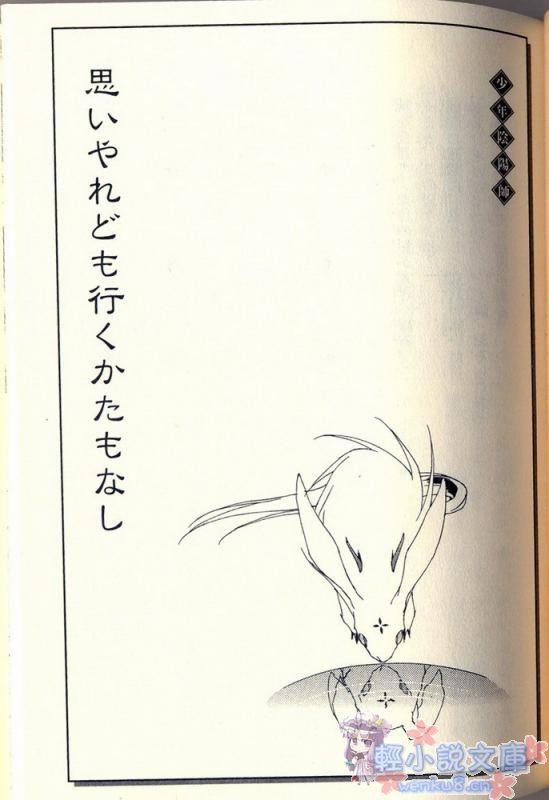 少年陰陽師
思いやれども行くかたもなし
輕小說文庫
wenku8.cn